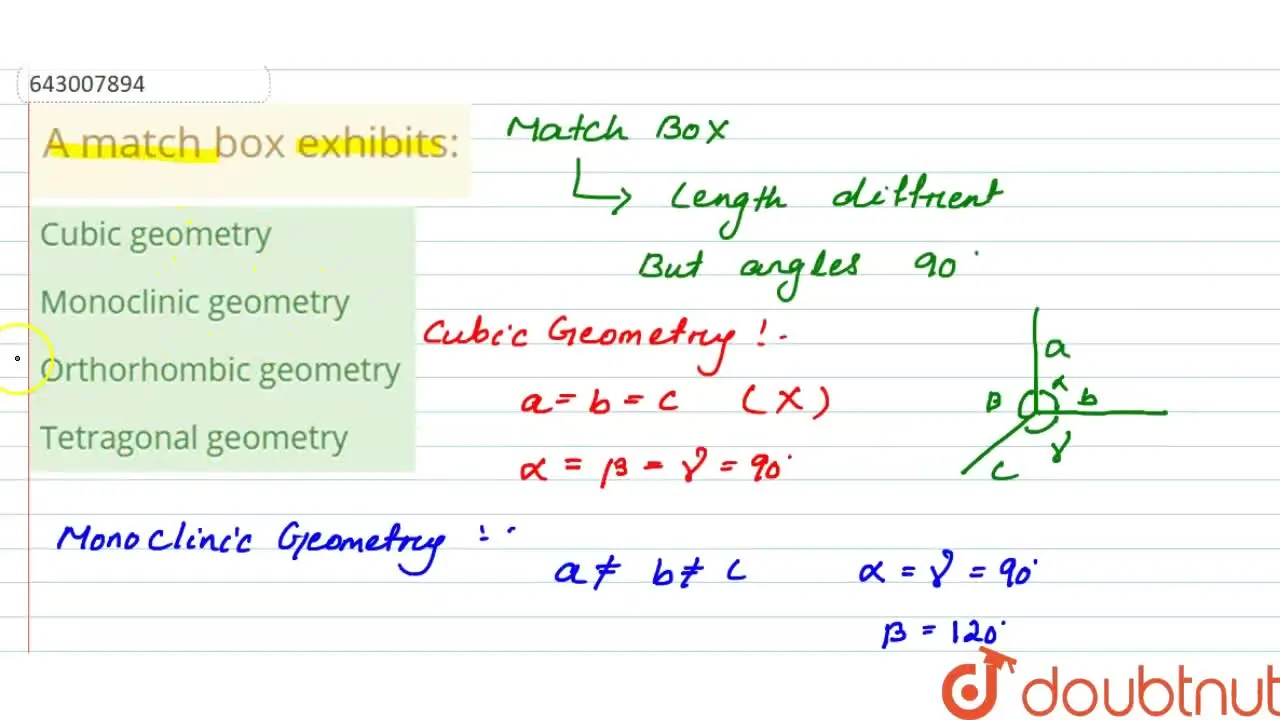 643007894
A match box exhibits:
Cubic geometry
Monoclinic geometry
Orthorhombic geometry
Tetragonal geometry
Match Box
Length diffrent
But angles 90°
Cubic Geometry :-
a = b = c (X)
α = β = γ = 90°
a
α
B b
γ
c
Monoclinic Geometry :-
a ≠ b ≠ c α = γ = 90°
β = 120°
doubtnut